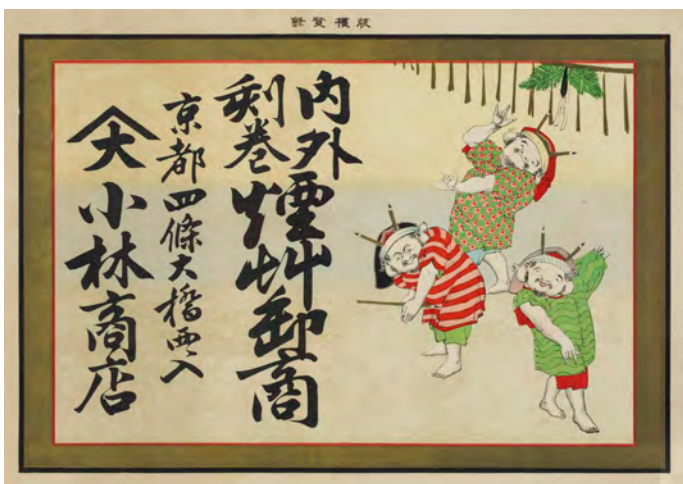 版權登録
内外
刻巻
煙艸卸商
京都四條大橋西入
大小林商店